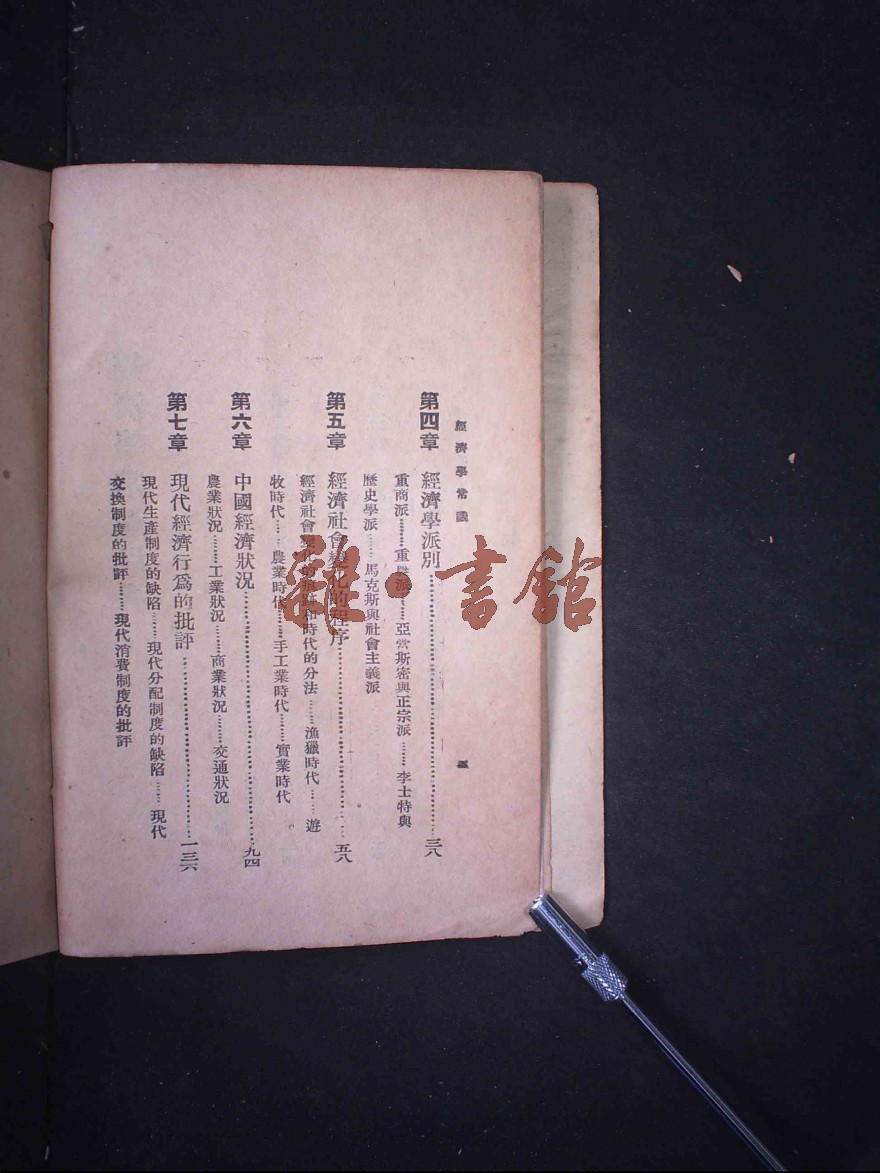 經濟學常識
第四章 經濟學派別……三八
重商派……重農派……亞當斯密與正宗派……李士特與
歷史學派……馬克斯與社會主義派
第五章 經濟社會變化的程序……五八
經濟社會變化的痕跡和時代的分法……漁獵時代……遊
牧時代……農業時代……手工業時代……實業時代
第六章 中國經濟狀況……九四
農業狀況……工業狀況……商業狀況……交通狀況
第七章 現代經濟行爲的批評……一三六
現代生產制度的缺陷……現代分配制度的缺陷……現代
交換制度的批評……現代消費制度的批評
雜·書館